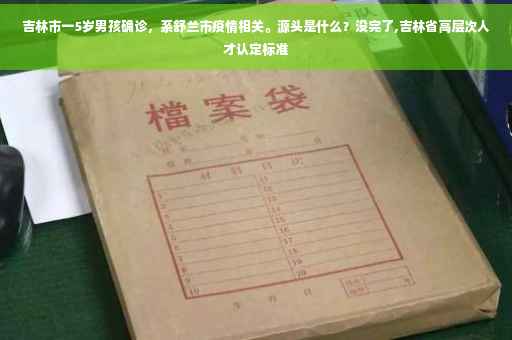 吉林市一5岁男孩确诊，系舒兰市疫情相关。源头是什么？没完了,吉林省高层次人
才认定标准
檔案袋
材料目次
1
2
3
4
5
6
7
8
9
10
11
12
13
14
15
16
17
18
19
20
年 月 日